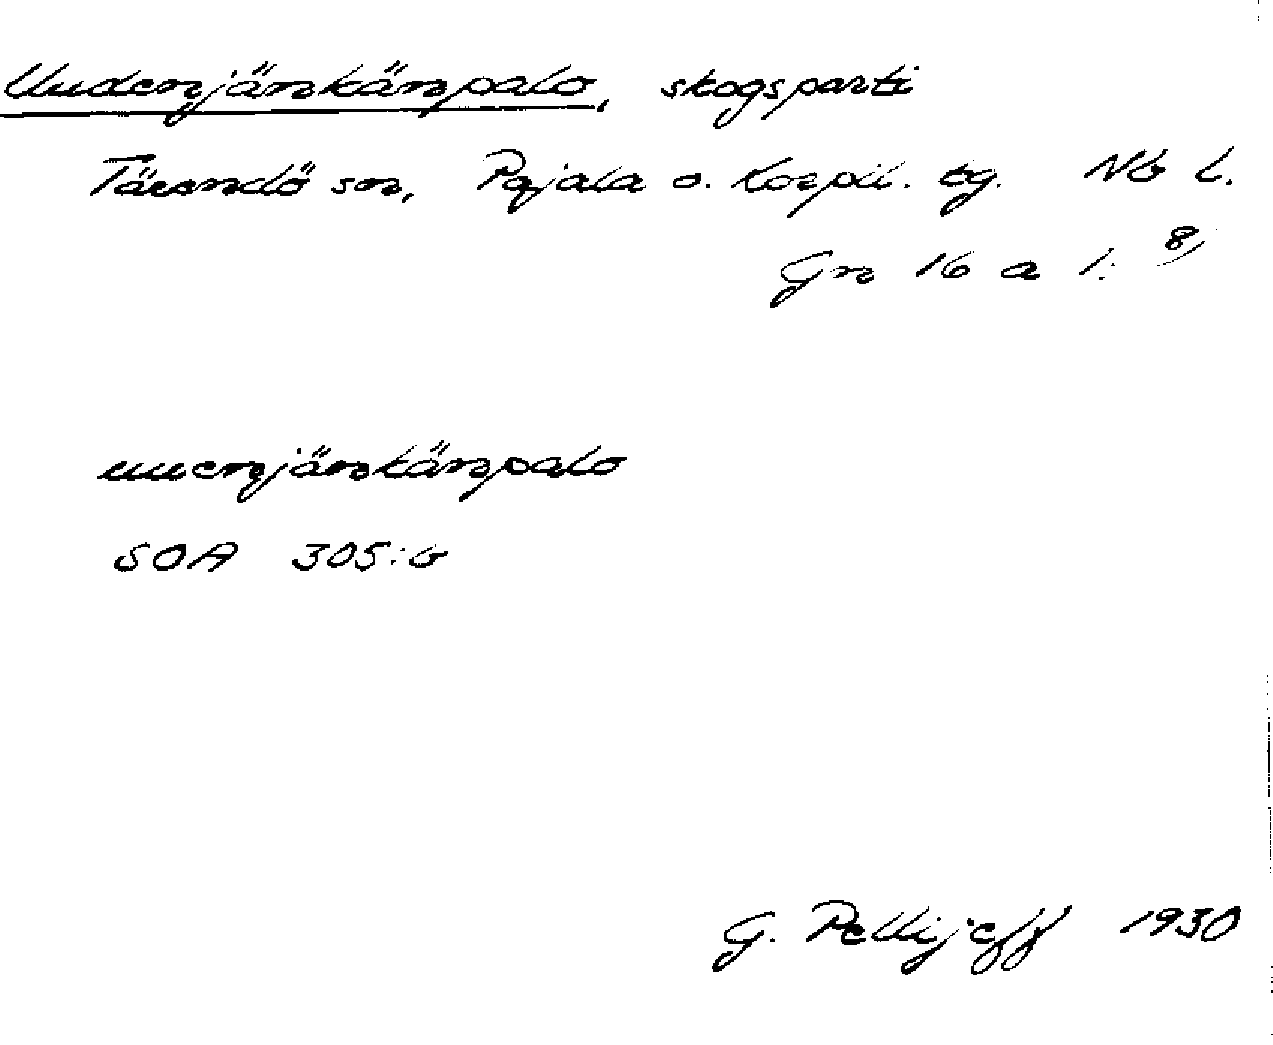 Uudenjänkänpalo, skogsparti
Tärendö sn, Pajala o. Korpil. tg. Nb l.
Gn 16 a 1: 8)
uuenjänkänpalo
SOA 305:6
G. Pellijeff 1930